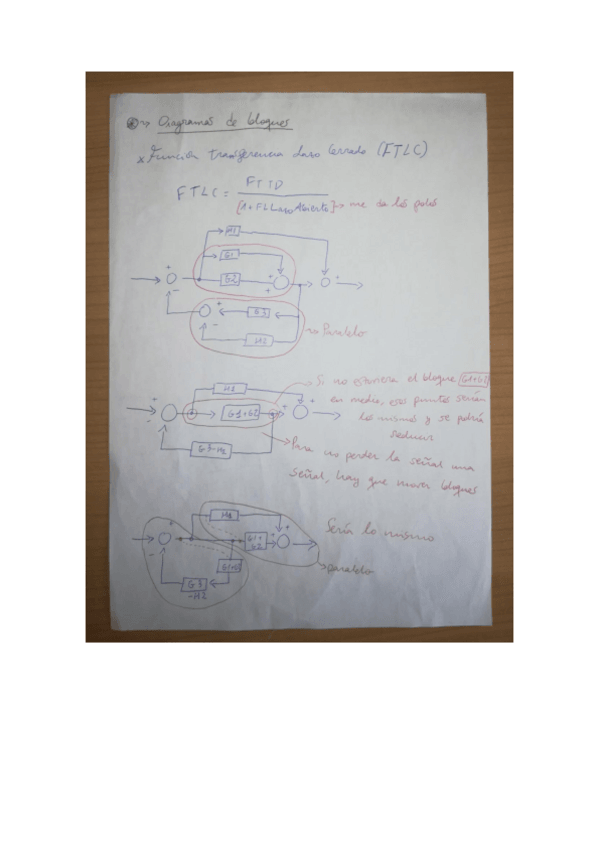 Diagramas de bloques
* Función transferencia lazo cerrado (FTLC)
FTLC = FTTD
[1 + FT Lazo Abierto] → me da los polos
H1
G1
G2
G3
H2
→ Paralelo
Si no estuviera el bloque G1+G2
en medio, esos puntos serían
los mismos y se podría
reducir
H1
G1+G2
G3-H2
→ Para no perder la señal una
señal, hay que mover bloques
H1
Sería lo mismo
G1+
G2
G1+G2
→ paralelo
G3
-H2